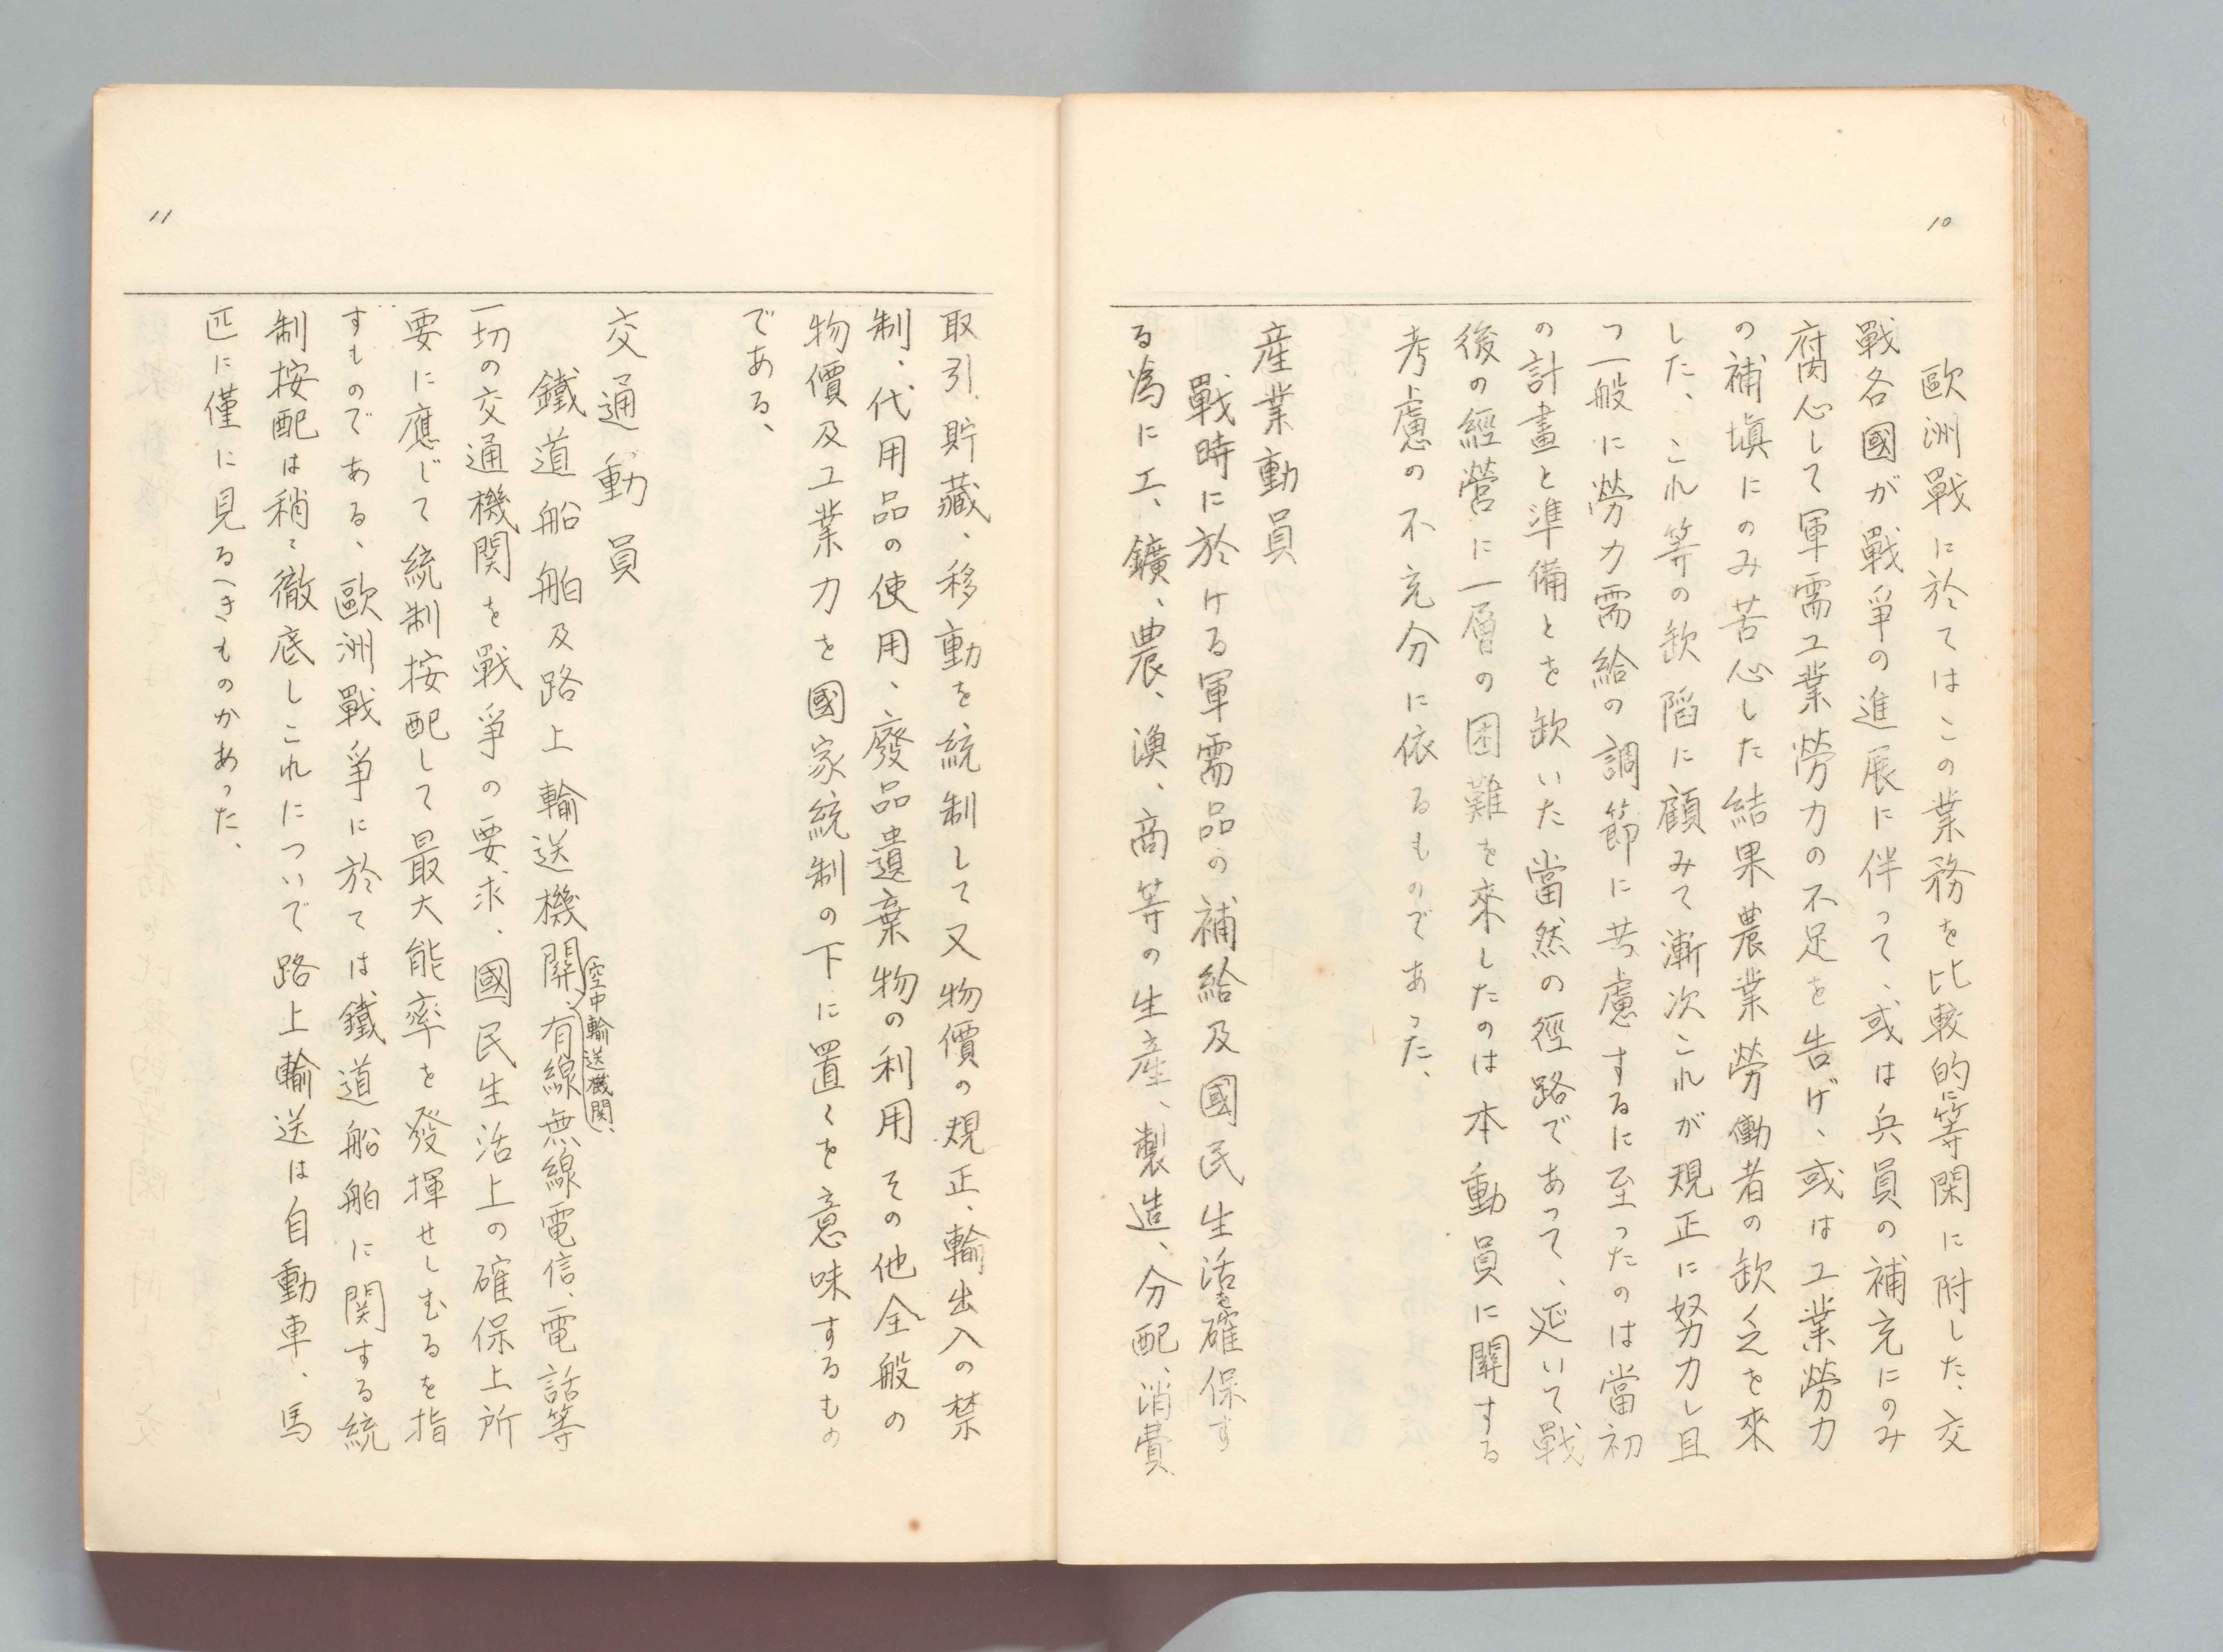 10
歐洲戰に於てはこの業務を比較的に等閑に附した、交
戰各國が戰爭の進展に伴って、或は兵員の補充にのみ
腐心して軍需工業勞力の不足を告げ、或は工業勞力
の補塡にのみ苦心した結果農業勞働者の欽乏を來
した、これ等の欽陷に顧みて漸次これが規正に努力し且
つ一般に勞力需給の調節に苦慮するに至ったのは當初
の計畫と準備とを欽いた當然の徑路であって、延いて戰
後の經營に一層の困難を來したのは本動員に關する
考慮の不充分に依るものであった、
産業動員
戰時に於ける軍需品の補給及國民生活を確保す
る爲に工、鑛、農、漁、商等の生産、製造、分配、消費
11
取引、貯藏、移動を統制して又物價の規正、輸出入の禁
制、代用品の使用、廢品遺棄物の利用その他全般の
物價及工業力を國家統制の下に置くを意味するもの
である、
交通動員
鐵道船舶及路上輸送機關、(空中輸送機関)、有線無線電信、電話等
一切の交通機関を戰爭の要求、國民生活上の確保上所
要に應じて統制按配して最大能率を發揮せしむるを指
すものである、歐洲戰爭に於ては鐵道船舶に関する統
制按配は稍〻徹底しこれについで路上輸送は自動車、馬
匹に僅に見るへきものかあった、